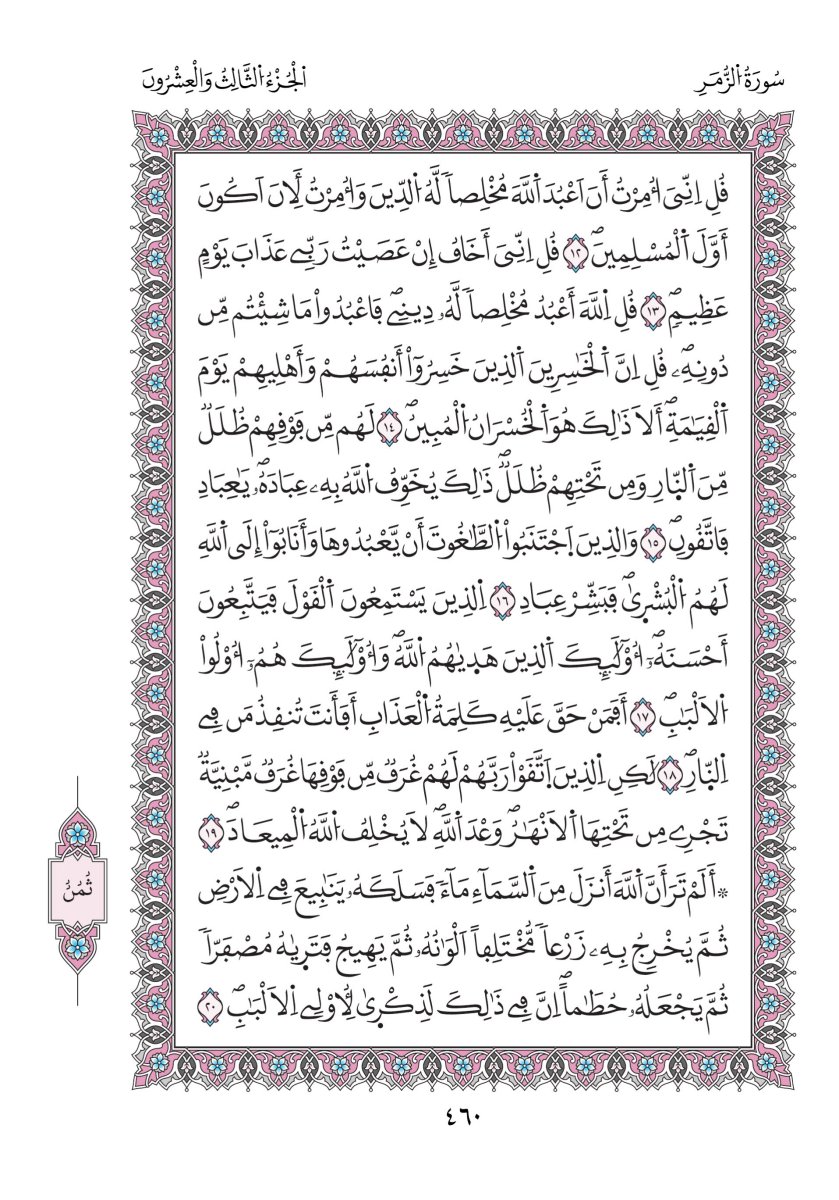 سُورَةُ اُ۬لزُّمَرِ
اَ۬لْجُزْءُ اُ۬لثَّالِثُ وَالْعِشْرُونَ
قُلِ اِنِّيَ أُمِرْتُ أَنَ اَعْبُدَ اَ۬للَّهَ مُخْلِصاٗ لَّهُ اُ۬لدِّينَ وَأُمِرْتُ لِأَنَ اَكُونَ
أَوَّلَ اَ۬لْمُسْلِمِينَۖ ١٢ قُلِ اِنِّيَ أَخَافُ إِنْ عَصَيْتُ رَبِّے عَذَابَ يَوْمٍ
عَظِيمٖۖ ١٣ قُلِ اِ۬للَّهَ أَعْبُدُ مُخْلِصاٗ لَّهُۥ دِينِےۖ فَاعْبُدُواْ مَا شِئْتُم مِّن
دُونِهِۦۖ قُلِ اِنَّ اَ۬لْخَٰسِرِينَ اَ۬لذِينَ خَسِرُوٓاْ أَنفُسَهُمْ وَأَهْلِيهِمْ يَوْمَ
اَ۬لْقِيَٰمَةِۖ أَلَا ذَٰلِكَ هُوَ اَ۬لْخُسْرَانُ اُ۬لْمُبِينُۖ ١٤ لَهُم مِّن فَوْقِهِمْ ظُلَلٞ
مِّنَ اَ۬لنّ۪ارِ وَمِن تَحْتِهِمْ ظُلَلٞۖ ذَٰلِكَ يُخَوِّفُ اُ۬للَّهُ بِهِۦ عِبَادَهُۥۖ يَٰعِبَادِ
فَاتَّقُونِۖ ١٥ وَالذِينَ اَجْتَنَبُواْ اُ۬لطَّٰغُوتَ أَنْ يَّعْبُدُوهَا وَأَنَابُوٓاْ إِلَى اَ۬للَّهِ
لَهُمُ اُ۬لْبُشْر۪ىٰۖ فَبَشِّرْ عِبَادِ ١٦ اِ۬لذِينَ يَسْتَمِعُونَ اَ۬لْقَوْلَ فَيَتَّبِعُونَ
أَحْسَنَهُۥٓۖ أُوْلَٰٓئِكَ اَ۬لذِينَ هَد۪يٰهُمُ اُ۬للَّهُۖ وَأُوْلَٰٓئِكَ هُمُۥٓ أُوْلُواْ
اُ۬لَالْبَٰبِۖ ١٧ أَفَمَنْ حَقَّ عَلَيْهِ كَلِمَةُ اُ۬لْعَذَابِ أَفَأَنتَ تُنقِذُ مَن فِے
اِ۬لنّ۪ارِۖ ١٨ لَٰكِنِ اِ۬لذِينَ اَتَّقَوْاْ رَبَّهُمْ لَهُمْ غُرَفٞ مِّن فَوْقِهَا غُرَفٞ مَّبْنِيَّةٞ
تَجْرِے مِن تَحْتِهَا اَ۬لَانْهَٰرُۖ وَعْدَ اَ۬للَّهِۖ لَا يُخْلِفُ اُ۬للَّهُ اُ۬لْمِيعَادَۖ ١٩
۞ أَلَمْ تَرَ أَنَّ اَ۬للَّهَ أَنزَلَ مِنَ اَ۬لسَّمَآءِ مَآءٗ فَسَلَكَهُۥ يَنَٰبِيعَ فِے اِ۬لَارْضِ
ثُمَّ يُخْرِجُ بِهِۦ زَرْعاٗ مُّخْتَلِفاً اَلْوَٰنُهُۥ ثُمَّ يَهِيجُ فَتَر۪يٰهُ مُصْفَرّاٗ
ثُمَّ يَجْعَلُهُۥ حُطَٰماًۖ اِنَّ فِے ذَٰلِكَ لَذِكْر۪ىٰ لِأُوْلِے اِ۬لَالْبَٰبِۖ ٢٠
ثُمُنُ
٤٦٠